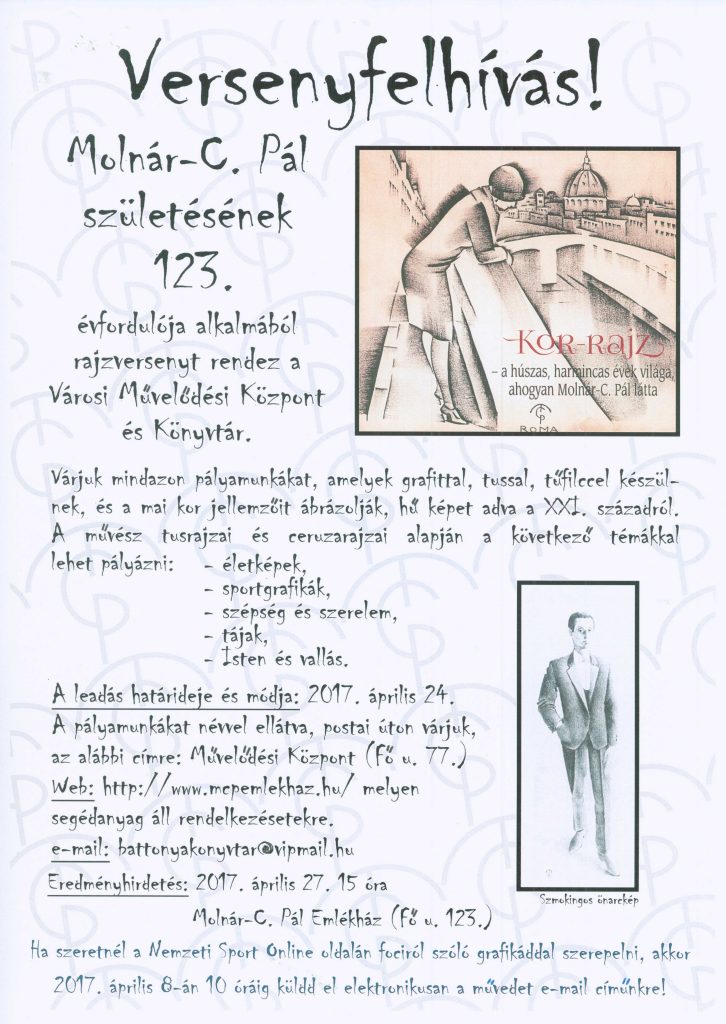 Versenyfelhívás!
Molnár-C. Pál
születésének
123.
évfordulója alkalmából
rajzversenyt rendez a
Városi Művelődési Központ
és Könyvtár.
Kor-rajz
– a húszas, harmincas évek világa,
ahogyan Molnár-C. Pál látta
ROMA
Várjuk mindazon pályamunkákat, amelyek grafittal, tussal, tűfilccel készül-
nek, és a mai kor jellemzőit ábrázolják, hű képet adva a XXI. századról.
A művész tusrajzai és ceruzarajzai alapján a következő témákkal
lehet pályázni: - életképek,
- sportgrafikák,
- szépség és szerelem,
- tájak,
- Isten és vallás.
A leadás határideje és módja: 2017. április 24.
A pályamunkákat névvel ellátva, postai úton várjuk,
az alábbi címre: Művelődési Központ (Fő u. 77.)
Web: http://www.mcpemlekhaz.hu/ melyen
segédanyag áll rendelkezésetekre.
e-mail: battonyakonyvtar@vipmail.hu
Eredményhirdetés: 2017. április 27. 15 óra
Molnár-C. Pál Emlékház (Fő u. 123.)
Szmokingos önarckép
Ha szeretnél a Nemzeti Sport Online oldalán fociról szóló grafikáddal szerepelni, akkor
2017. április 8-án 10 óráig küldd el elektronikusan a művedet e-mail címünkre!